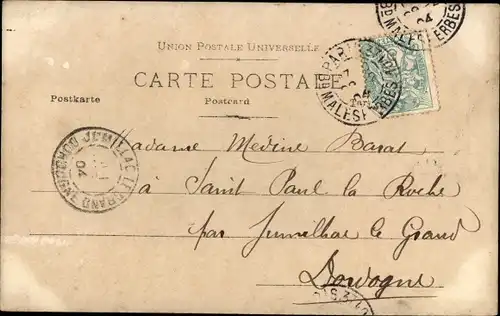 UNION POSTALE UNIVERSELLE
CARTE POSTALE
Postkarte
Postcard
PARIS
Bd MALESHERBES
04
Bd MALESHERBES
04
JUMILLAC-LE-GRAND DORDOGNE
04
Madame Medine Barat
à Saint Paul la Roche
par Jumilhac le Grand
Dordogne